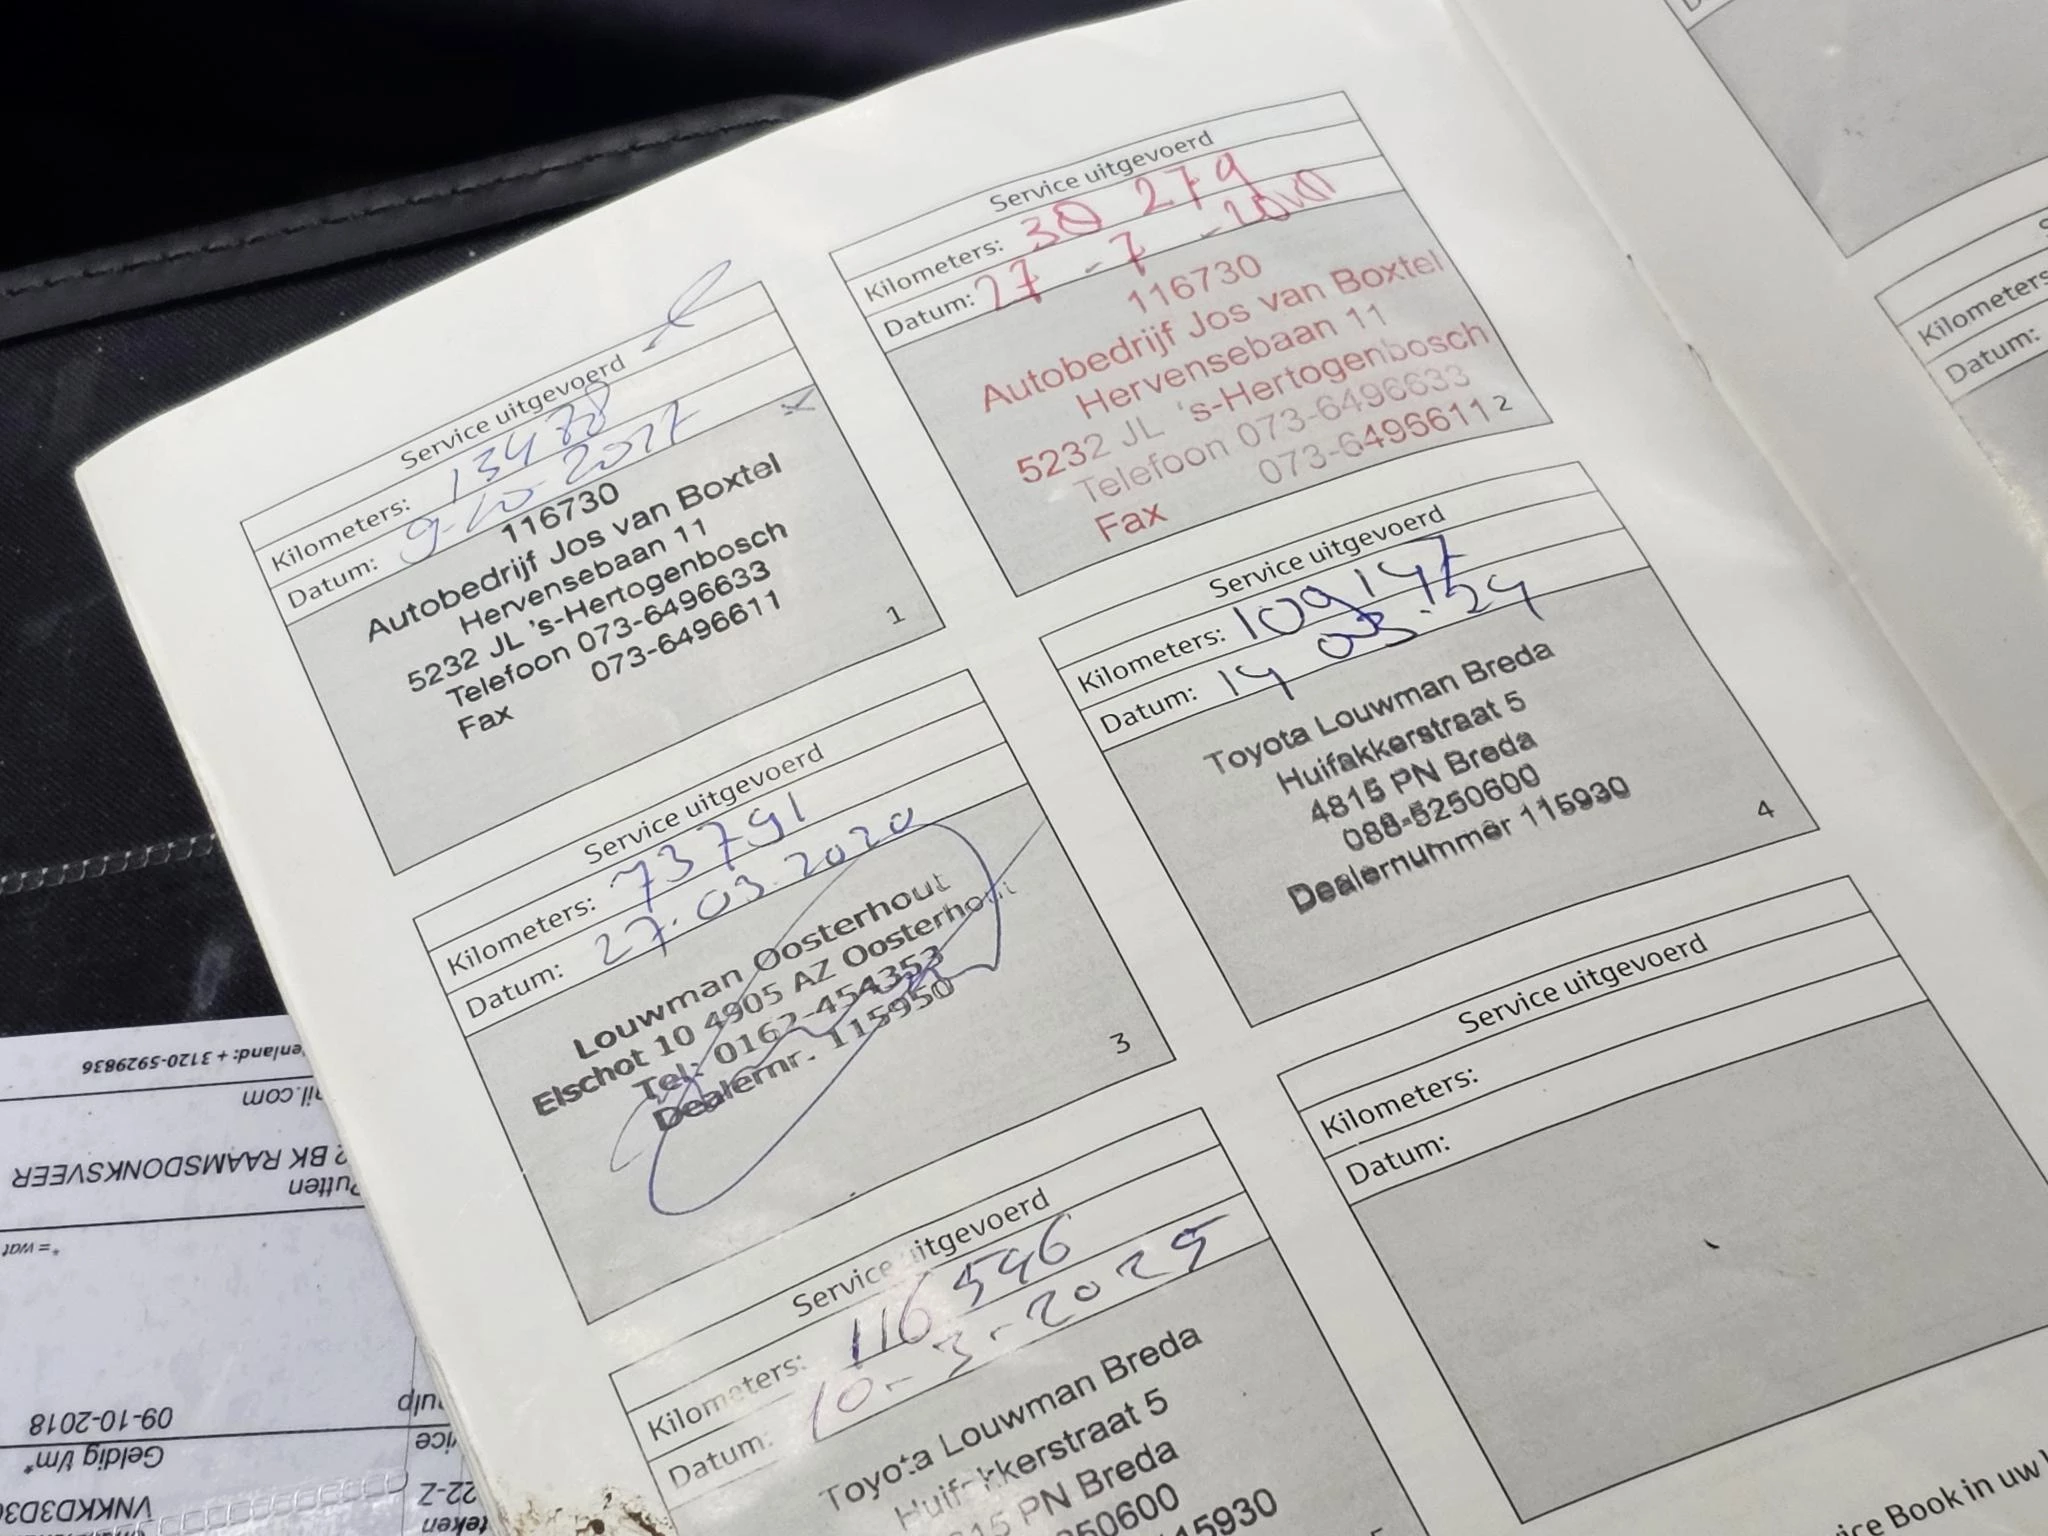 Service uitgevoerd
Kilometers: 13478
Datum: 9-10-2017
116730
Autobedrijf Jos van Boxtel
Hervensebaan 11
5232 JL 's-Hertogenbosch
Telefoon 073-6496633
Fax 073-6496611
1
Service uitgevoerd
Kilometers: 30 279
Datum: 27-7
116730
Autobedrijf Jos van Boxtel
Hervensebaan 11
5232 JL 's-Hertogenbosch
Telefoon 073-6496633
Fax 073-6496611
2
Service uitgevoerd
Kilometers: 73791
Datum: 27.03.2020
Louwman Oosterhout
Elschot 10 4905 AZ Oosterhout
Tel: 0162-454353
Dealernr. 115950
3
Service uitgevoerd
Kilometers: 109147
Datum: 14 03.24
Toyota Louwman Breda
Huifakkerstraat 5
4815 PN Breda
088-5250600
Dealernummer 115930
4
Service uitgevoerd
Kilometers: 116 546
Datum: 10-3-2025
Toyota Louwman Breda
Huifakkerstraat 5
4815 PN Breda
Service uitgevoerd
Kilometers:
Datum:
Kilometers:
Datum:
ice Book in uw
enland: + 3120-5929836
il.com
2 BK RAAMSDONKSVEER
Putten
*= wat
ulp
09-10-2018
Geldig t/m*
22-Z
VNKKD3D3
teken